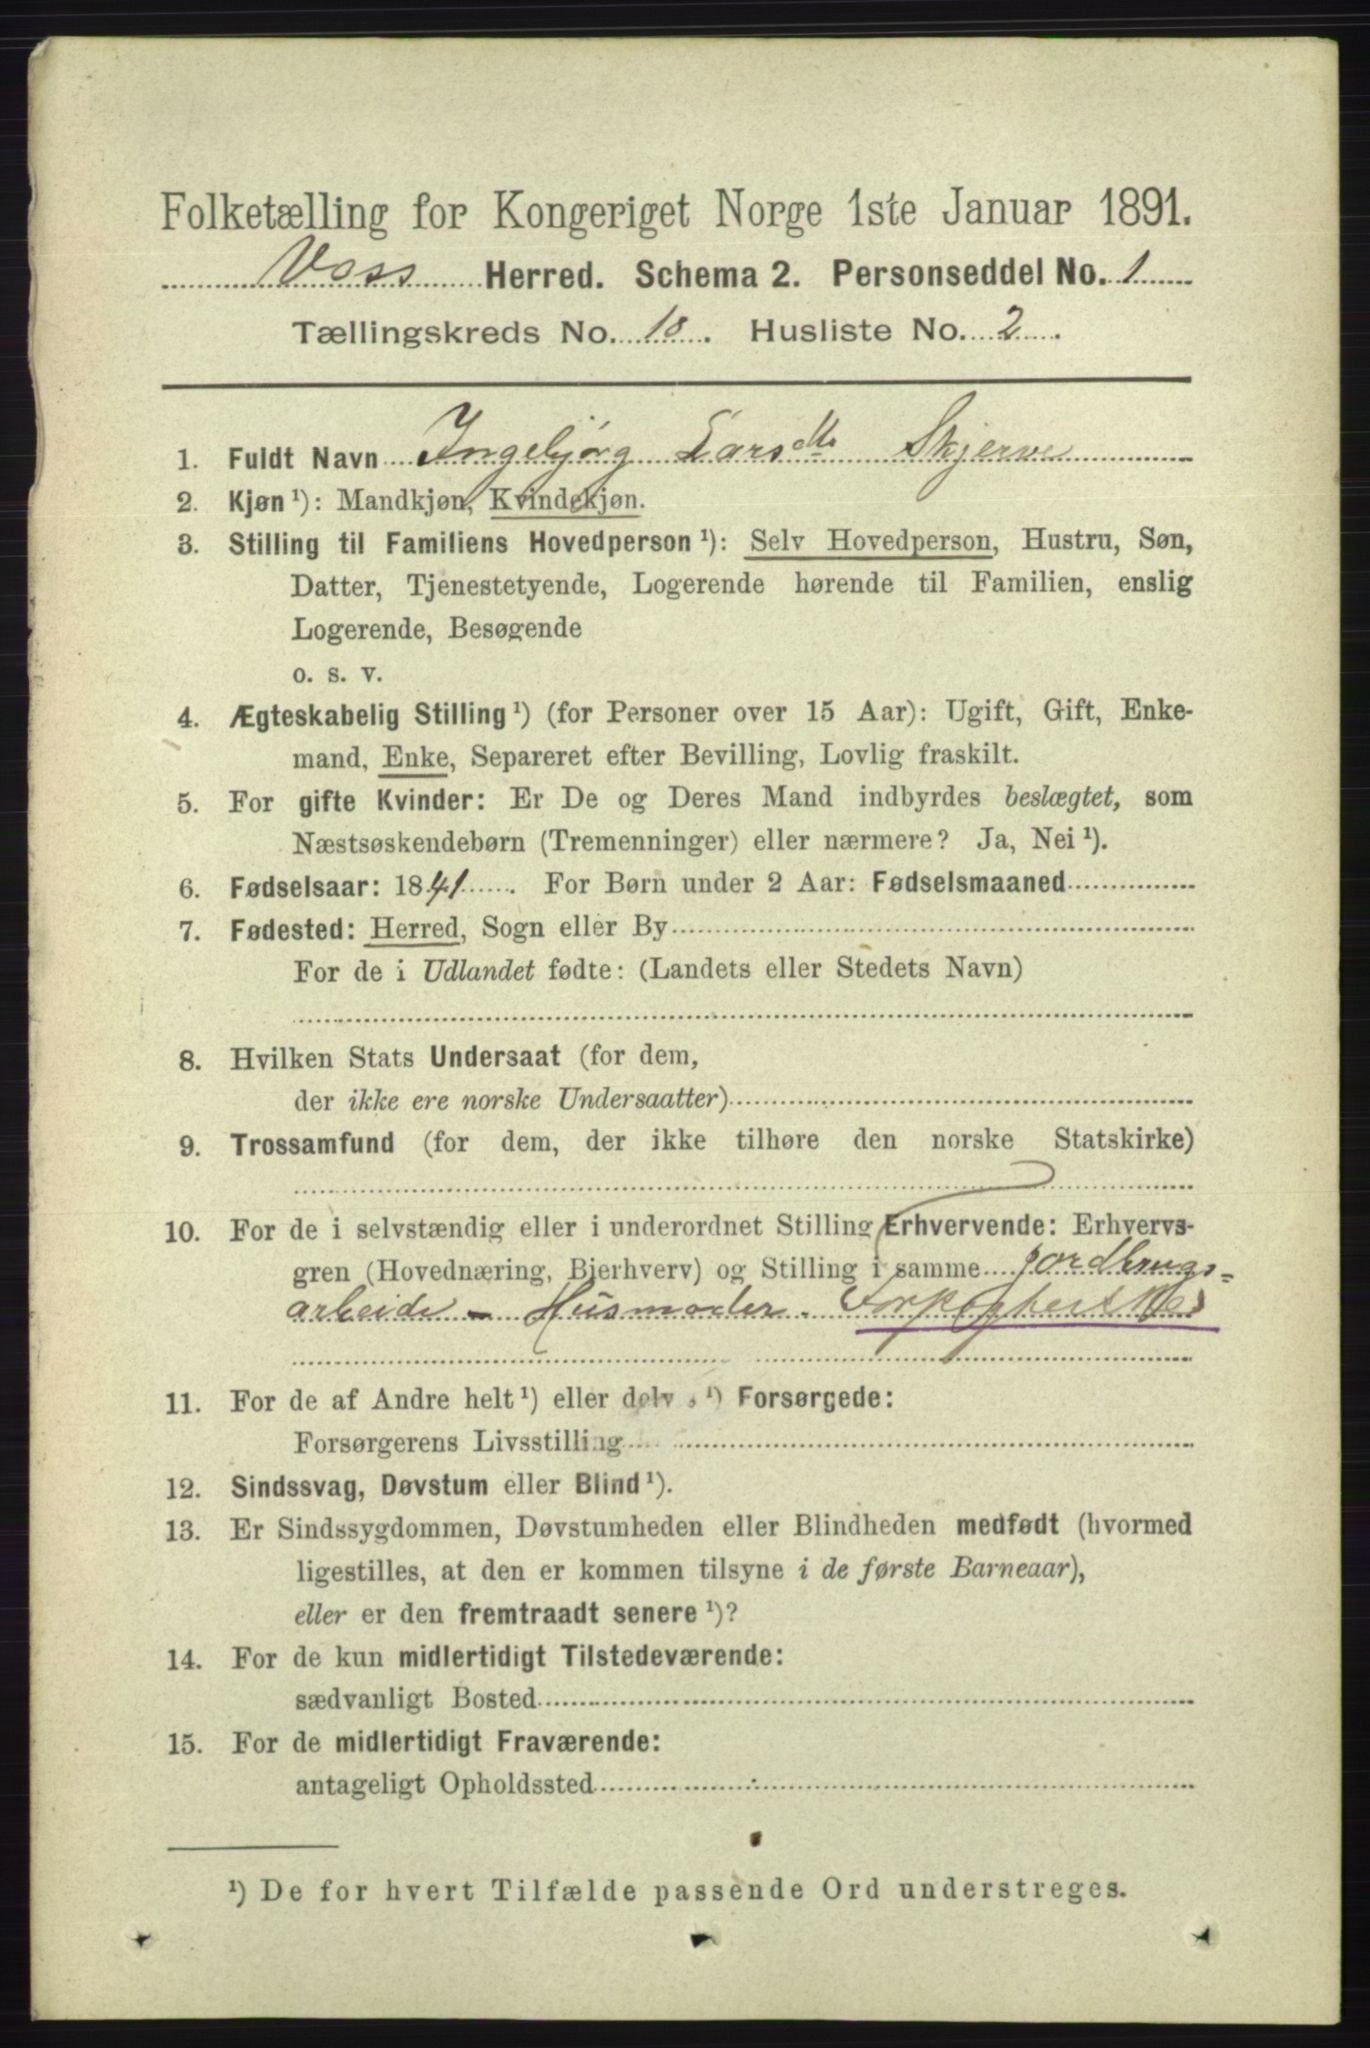 Folketælling for Kongeriget Norge 1ste Januar 1891.
Voss Herred. Schema 2. Personseddel No. 1
Tællingskreds No. 18. Husliste No. 2.
1. Fuldt Navn Ingebjørg Larsdtr Skjerve
2. Kjøn¹): Mandkjøn, Kvindekjøn.
3. Stilling til Familiens Hovedperson¹): Selv Hovedperson, Hustru, Søn,
Datter, Tjenestetyende, Logerende hørende til Familien, enslig
Logerende, Besøgende
o. s. v.
4. Ægteskabelig Stilling¹) (for Personer over 15 Aar): Ugift, Gift, Enke-
mand, Enke, Separeret efter Bevilling, Lovlig fraskilt.
5. For gifte Kvinder: Er De og Deres Mand indbyrdes beslægtet, som
Næstsøskendebørn (Tremenninger) eller nærmere? Ja, Nei¹).
6. Fødselsaar: 1841. For Børn under 2 Aar: Fødselsmaaned
7. Fødested: Herred, Sogn eller By
For de i Udlandet fødte: (Landets eller Stedets Navn)
8. Hvilken Stats Undersaat (for dem,
der ikke ere norske Undersaatter)
9. Trossamfund (for dem, der ikke tilhøre den norske Statskirke)
10. For de i selvstændig eller i underordnet Stilling Erhvervende: Erhvervs-
gren (Hovednæring, Bierhverv) og Stilling i samme Jordbrugs-
arbeide - Husmoder.
11. For de af Andre helt¹) eller delvis¹) Forsørgede:
Forsørgerens Livsstilling
12. Sindssvag, Døvstum eller Blind¹).
13. Er Sindssygdommen, Døvstumheden eller Blindheden medfødt (hvormed
ligestilles, at den er kommen tilsyne i de første Barneaar),
eller er den fremtraadt senere¹)?
14. For de kun midlertidigt Tilstedeværende:
sædvanligt Bosted
15. For de midlertidigt Fraværende:
antageligt Opholdssted
¹) De for hvert Tilfælde passende Ord understreges.